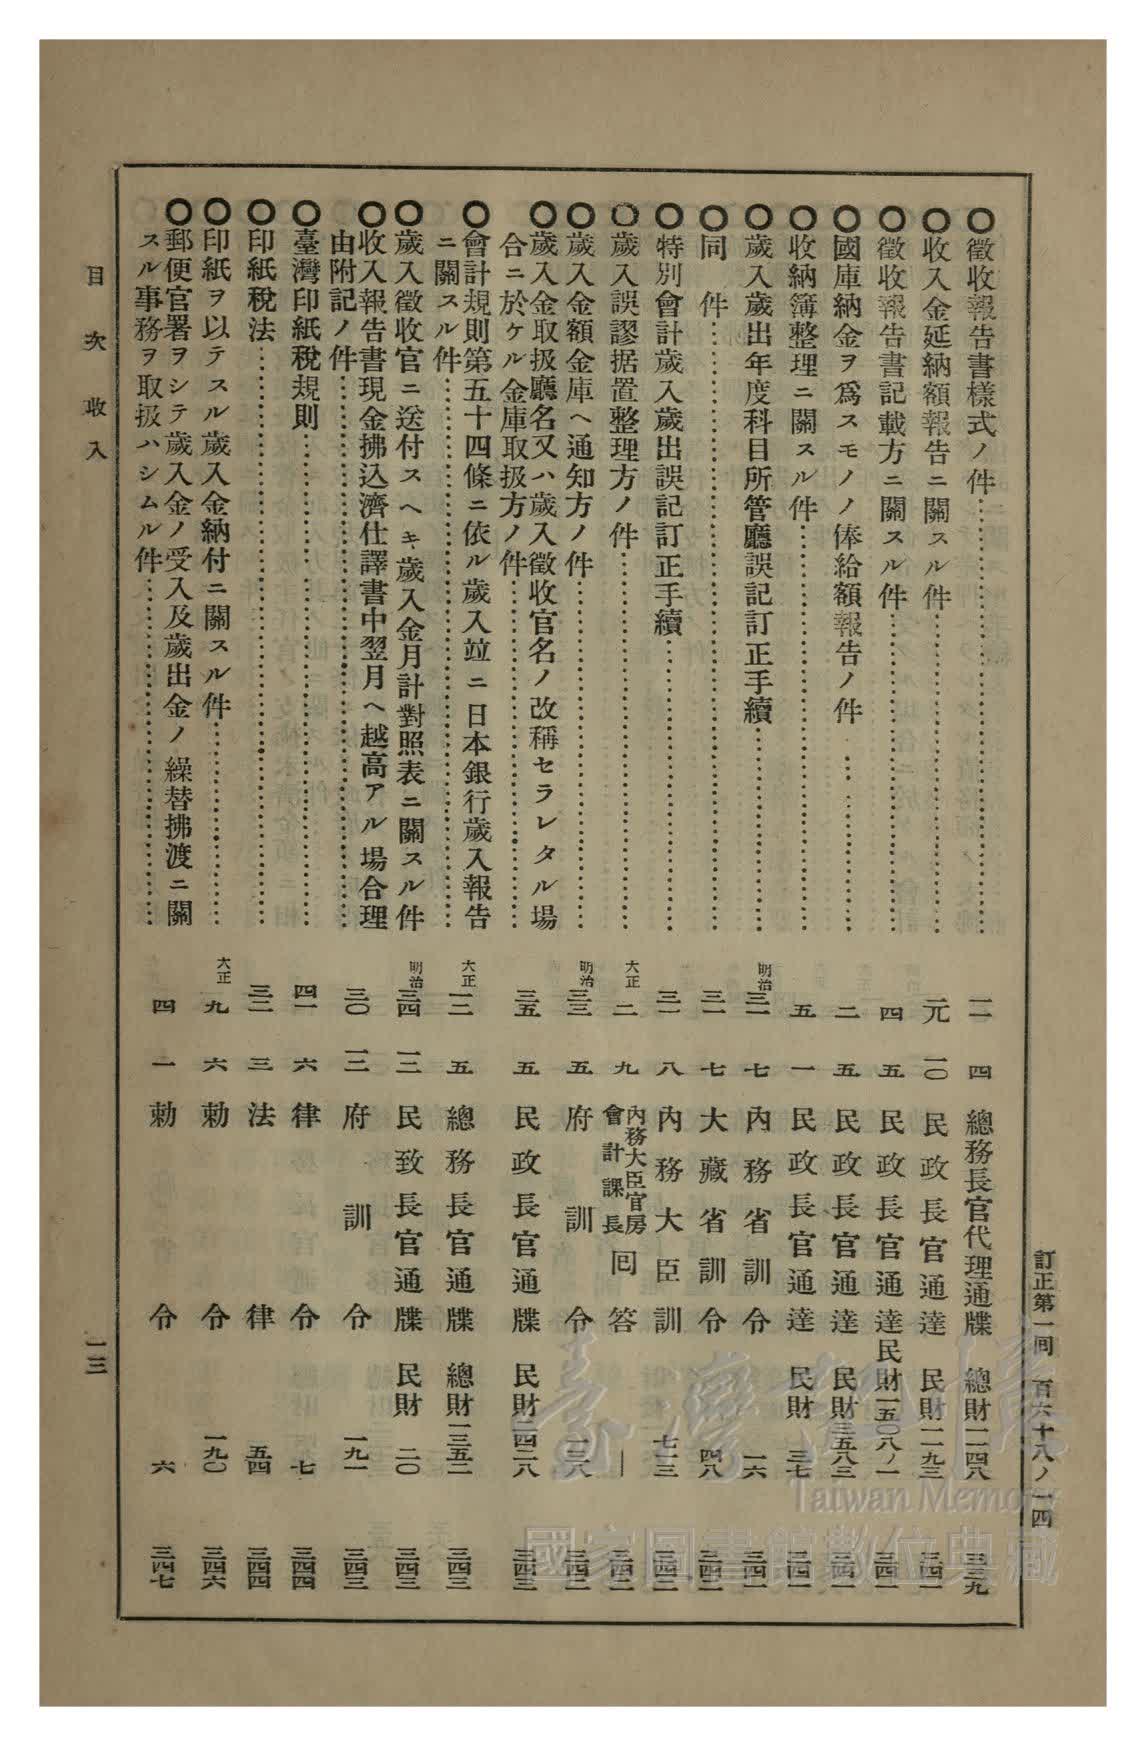 訂正第一囘 百六十八ノ一四
〇徵收報告書樣式ノ件 一一 四 總務長官代理通牒 總財一二四八 三三九
〇收入金延納額報告ニ關スル件 元 一〇 民政長官通達 民財一一九三 三四一
〇徵收報告書記載方ニ關スル件 四 五 民政長官通達 民財一五〇八ノ一 三四一
〇國庫納金ヲ爲スモノノ俸給額報告ノ件 二 五 民政長官通達 民財三五八三 三四一
〇收納簿整理ニ關スル件 五 一 民政長官通達 民財三七 三四一
〇歲入歲出年度科目所管廳誤記訂正手續 明治三一 七 內務省訓令 一六 三四一
〇同件 三一 七 大藏省訓令 四八 三四二
〇特別會計歲入歲出誤記訂正手續 三一 八 內務大臣訓 七一三 三四二
〇歲入誤謬据置整理方ノ件 大正二 九 內務大臣官房會計課長囘答 ― 三四二
〇歲入金額金庫ヘ通知方ノ件 明治三三 五 府訓令 一三八 三四二
〇歲入金取扱廳名又ハ歲入徵收官名ノ改稱セラレタル場
合ニ於ケル金庫取扱方ノ件 三五 五 民政長官通牒 民財二四二八 三四三
〇會計規則第五十四條ニ依ル歲入竝ニ日本銀行歲入報告
ニ關スル件 大正一二 五 總務長官通牒 總財一三五二 三四三
〇歲入徵收官ニ送付スヘキ歲入金月計對照表ニ關スル件 明治三四 一二 民致長官通牒 民財二〇 三四三
〇收入報告書現金拂込濟仕譯書中翌月ヘ越高アル場合理
由附記ノ件 三〇 一二 府訓令 一九一 三四三
〇臺灣印紙稅規則 四一 六 律令 七 三四四
〇印紙稅法 三二 三 法律 五四 三四四
〇印紙ヲ以テスル歲入金納付ニ關スル件 大正九 六 勅令 一九〇 三四六
〇郵便官署ヲシテ歲入金ノ受入及歲出金ノ繰替拂渡ニ關
スル事務ヲ取扱ハシムル件 四 一 勅令 六 三四七
目次 收入
一三
臺灣記憶
Taiwan Memory
國家圖書館數位典藏